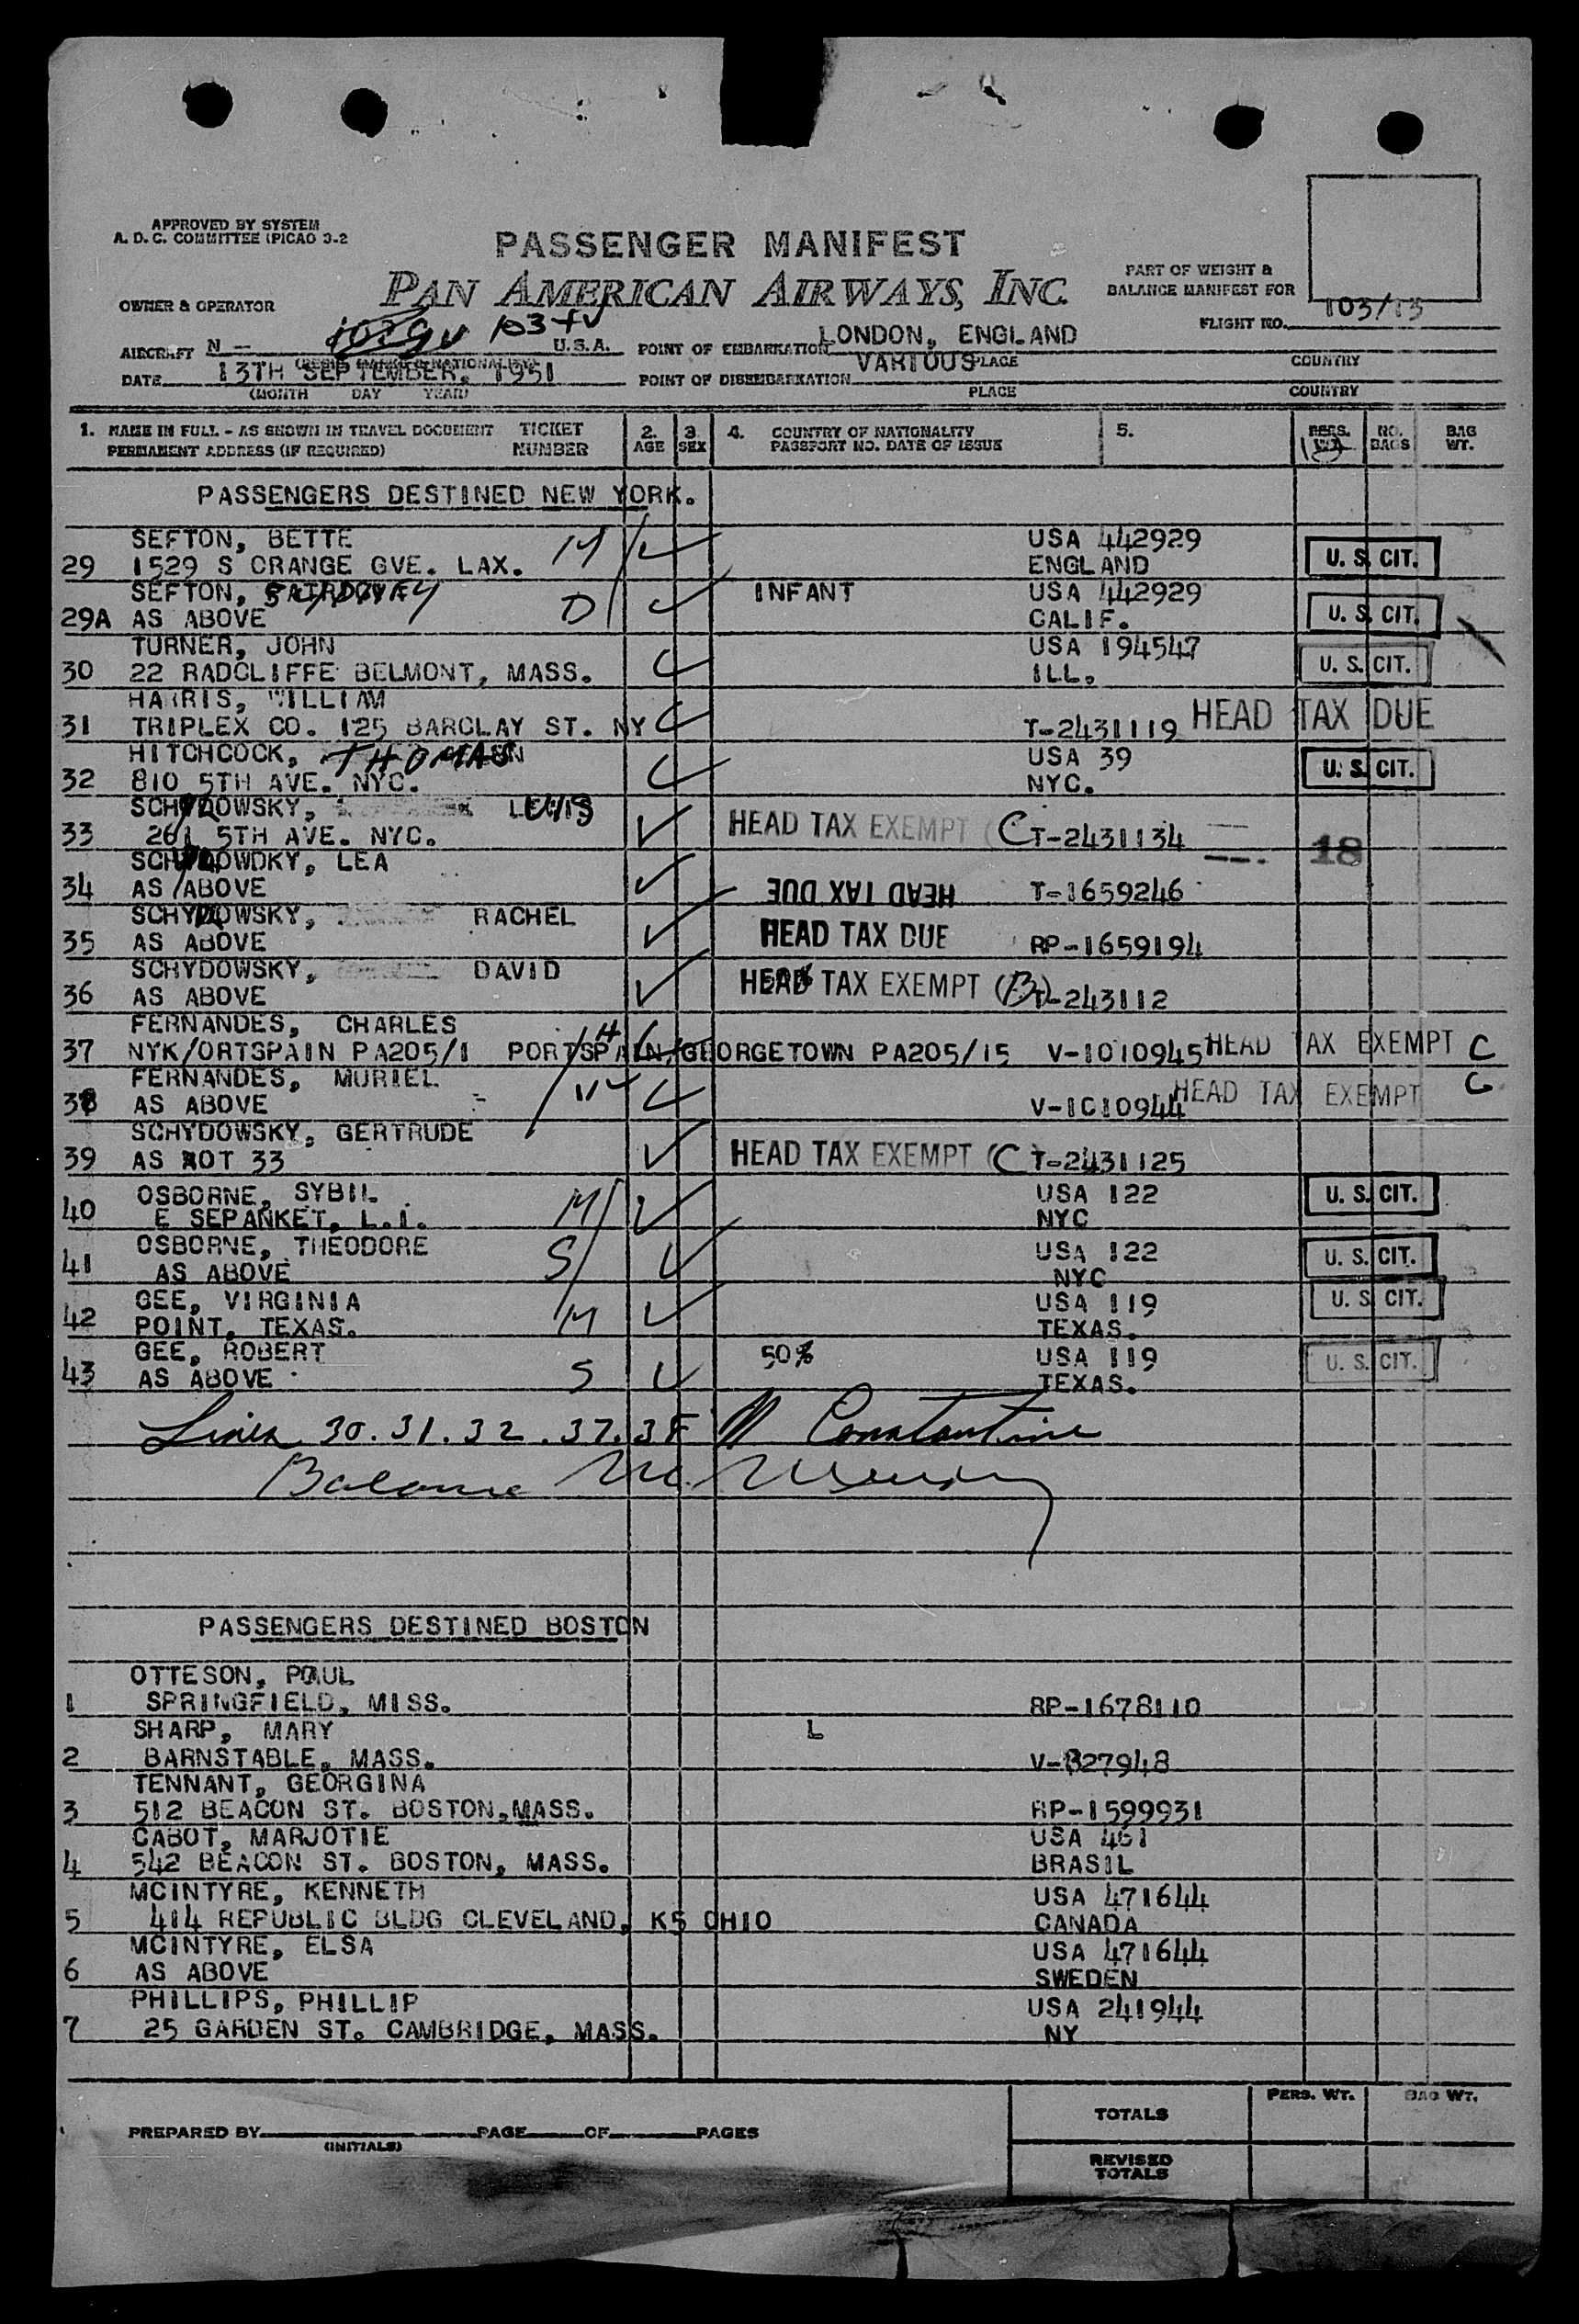 APPROVED BY SYSTEM
A. D. C. COMMITTEE (PICAO 3-2
PASSENGER MANIFEST
PAN AMERICAN AIRWAYS, INC.
OWNER & OPERATOR
PART OF WEIGHT &
BALANCE MANIFEST FOR
FLIGHT NO. 103/13
AIRCRAFT N - 103 U.S.A.
POINT OF EMBARKATION LONDON, ENGLAND
PLACE COUNTRY
DATE 13TH SEPTEMBER, 1951
(MONTH DAY YEAR)
POINT OF DISEMBARKATION VARIOUS
PLACE COUNTRY
1. NAME IN FULL - AS SHOWN IN TRAVEL DOCUMENT TICKET 2. 3. 4. COUNTRY OF NATIONALITY 5. PERS. NO. BAG
PERMANENT ADDRESS (IF REQUIRED) NUMBER AGE SEX PASSPORT NO. DATE OF ISSUE WT. BAGS WT.
PASSENGERS DESTINED NEW YORK.
SEFTON, BETTE M USA 442929
29 1529 S ORANGE GVE. LAX. ENGLAND U. S. CIT.
SEFTON, INFANT USA 442929
29A AS ABOVE D CALIF. U. S. CIT.
TURNER, JOHN USA 194547
30 22 RADCLIFFE BELMONT, MASS. ILL. U. S. CIT.
HARRIS, WILLIAM
31 TRIPLEX CO. 125 BARCLAY ST. NY T-2431119 HEAD TAX DUE
HITCHCOCK, THOMAS USA 39
32 810 5TH AVE. NYC. NYC. U. S. CIT.
SCHYDOWSKY, LEWIS
33 261 5TH AVE. NYC. HEAD TAX EXEMPT (C T-2431134 18
SCHYDOWDKY, LEA
34 AS ABOVE HEAD TAX DUE T-1659246
SCHYDOWSKY, RACHEL
35 AS ABOVE HEAD TAX DUE RP-1659194
SCHYDOWSKY, DAVID
36 AS ABOVE 50% HEAD TAX EXEMPT (B) T-243112
FERNANDES, CHARLES
37 NYK/ORTSPAIN PA205/1 PORTSPAIN/GEORGETOWN PA205/15 V-1010945 HEAD TAX EXEMPT C
FERNANDES, MURIEL
38 AS ABOVE V-1010944 HEAD TAX EXEMPT C
SCHYDOWSKY, GERTRUDE
39 AS NOT 33 HEAD TAX EXEMPT (C T-2431125
OSBORNE, SYBIL M USA 122 U. S. CIT.
40 E SEPANKET, L.I. NYC
OSBORNE, THEODORE S USA 122 U. S. CIT.
41 AS ABOVE NYC
GEE, VIRGINIA USA 119 U. S. CIT.
42 POINT, TEXAS. M TEXAS.
GEE, ROBERT 50% USA 119 U. S. CIT.
43 AS ABOVE S TEXAS.
Lines 30.31.32.37.38 Constantine
Balance
PASSENGERS DESTINED BOSTON
OTTESON, PAUL
1 SPRINGFIELD, MISS. RP-1678110
SHARP, MARY L
2 BARNSTABLE, MASS. V-827948
TENNANT, GEORGINA
3 512 BEACON ST. BOSTON,MASS. RP-1599931
CABOT, MARJOTIE USA 461
4 542 BEACON ST. BOSTON, MASS. BRASIL
MCINTYRE, KENNETH USA 471644
5 414 REPUBLIC BLDG CLEVELAND, K5 OHIO CANADA
MCINTYRE, ELSA USA 471644
6 AS ABOVE SWEDEN
PHILLIPS, PHILLIP USA 241944
7 25 GARDEN ST. CAMBRIDGE, MASS. NY
PERS. WT. BAG WT.
TOTALS
PREPARED BY (INITIALS) PAGE OF PAGES
REVISED
TOTALS